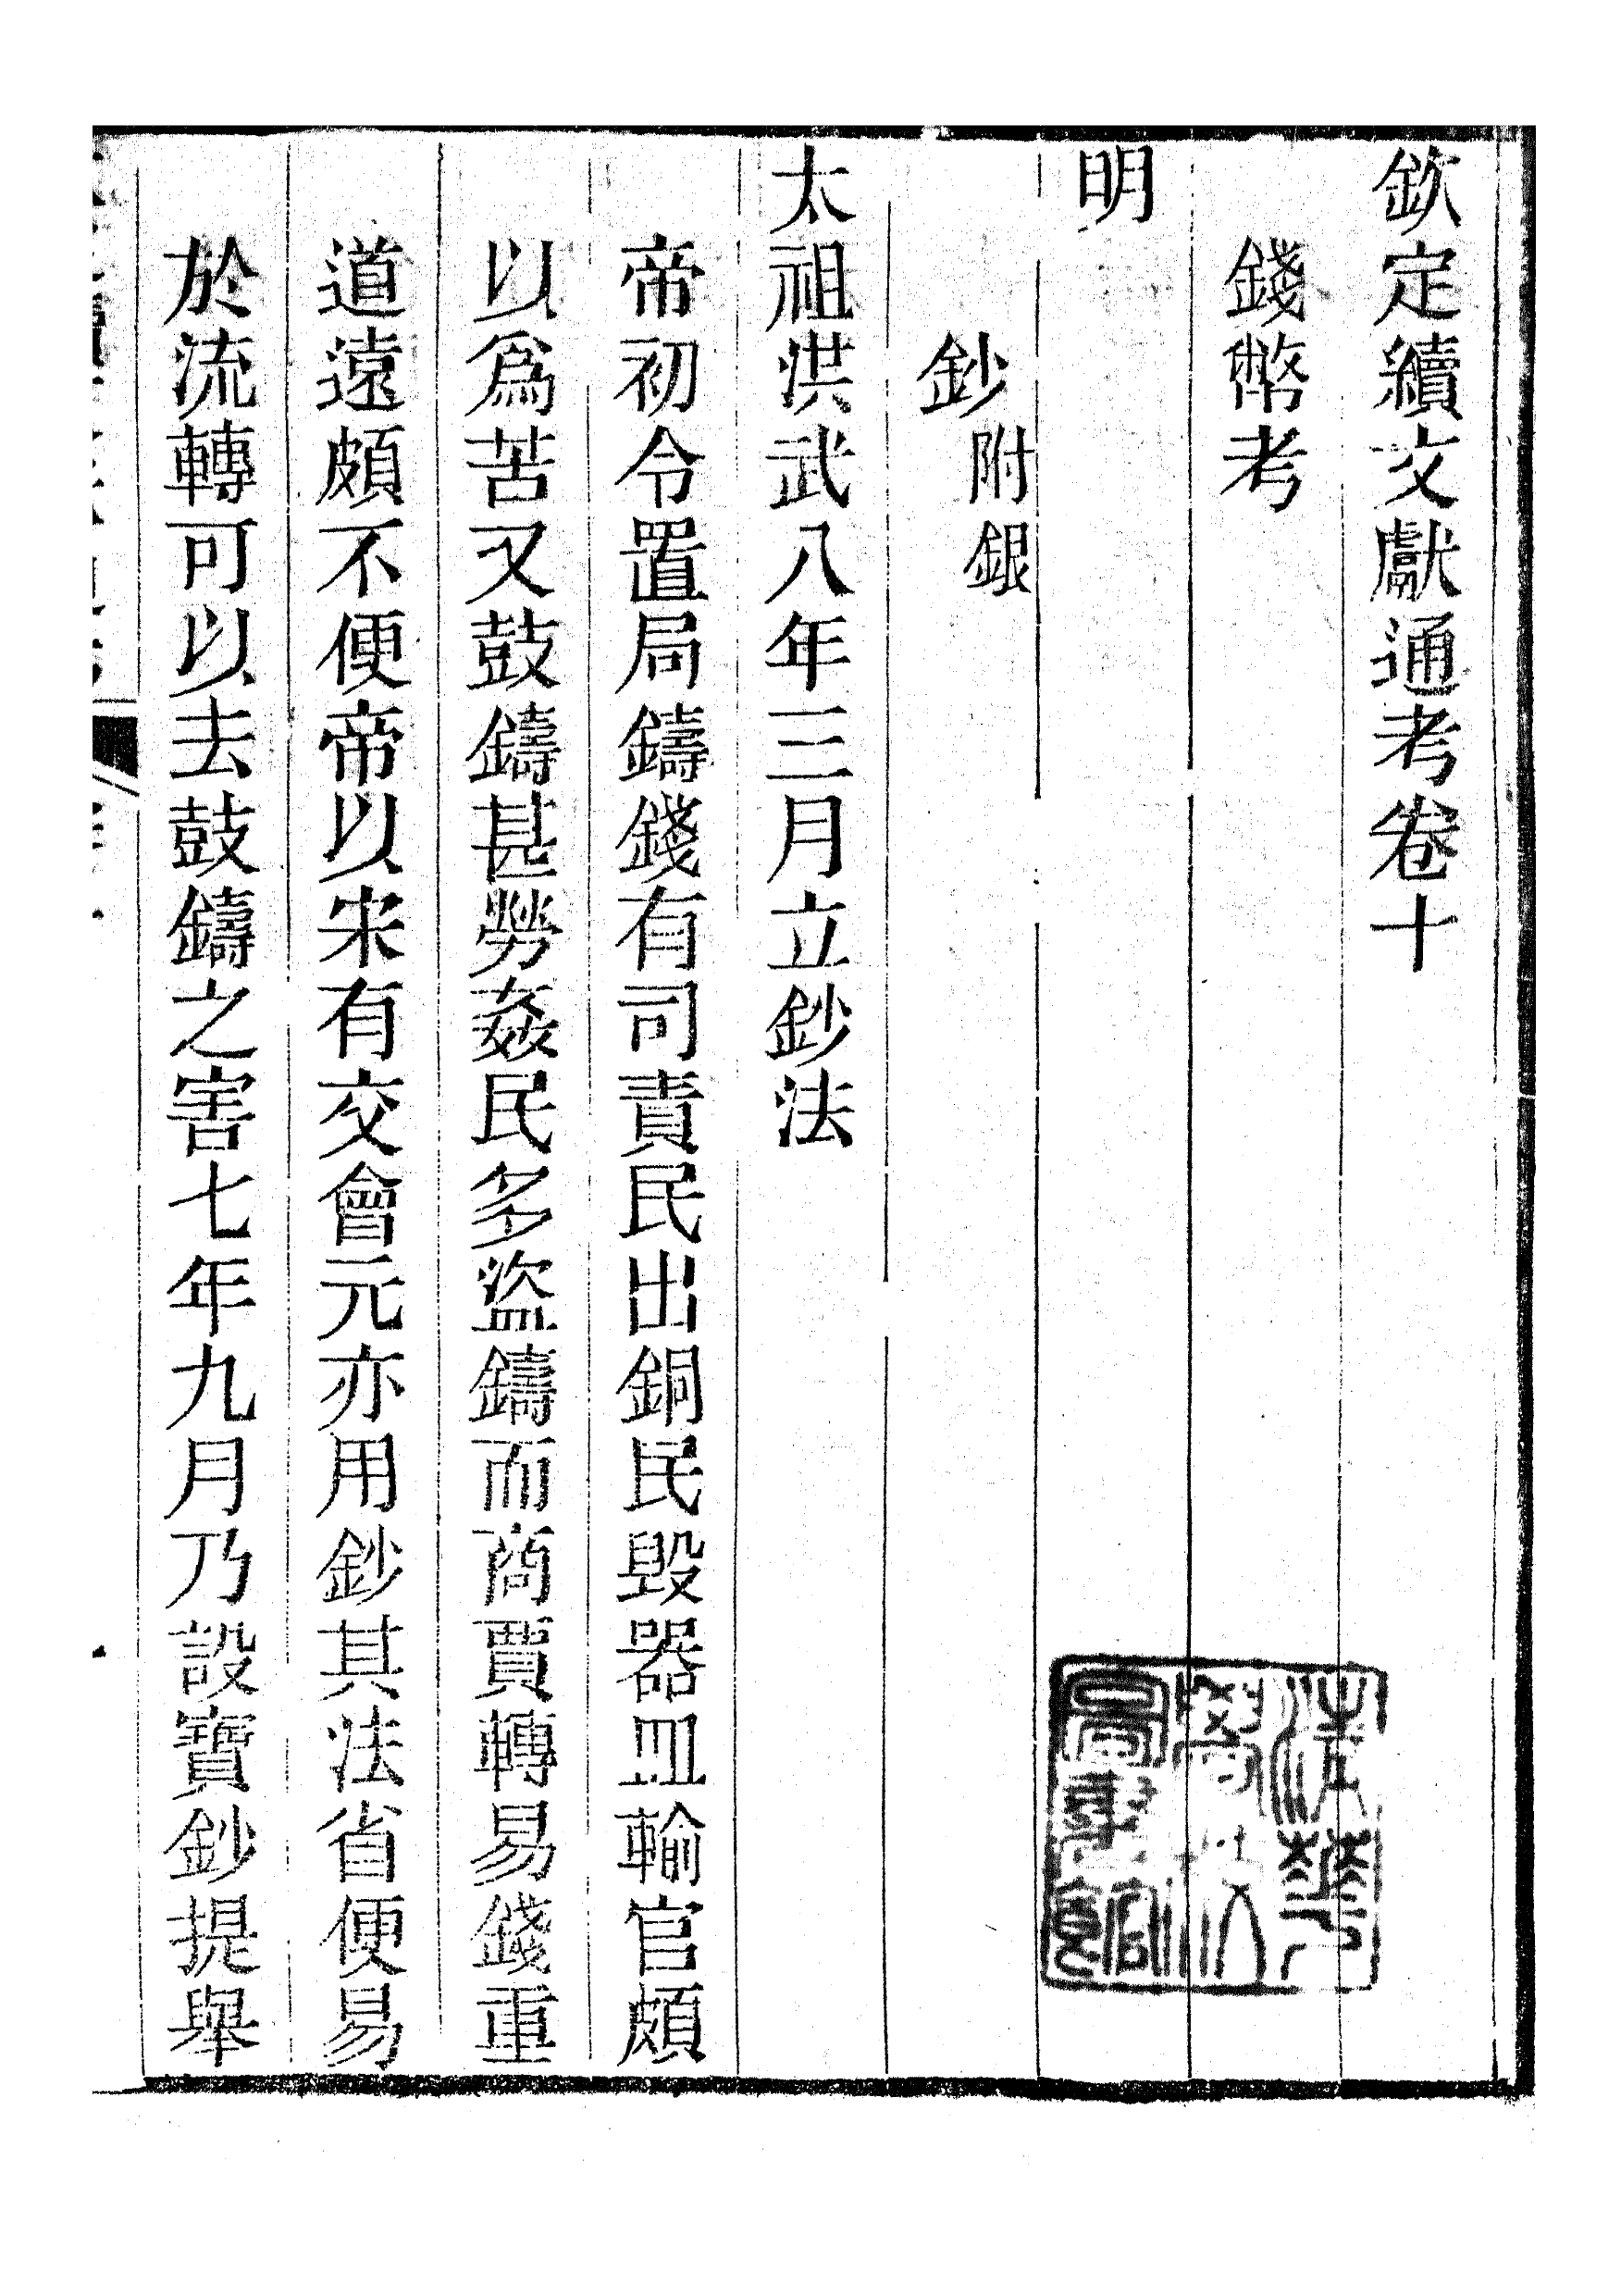 欽定續文獻通考卷十
錢幣考
明
鈔附銀
太祖洪武八年三月立鈔法
帝初令置局鑄錢有司責民出銅民毀器皿輸官頗
以爲苦又鼓鑄甚勞姦民多盜鑄而商賈轉易錢重
道遠頗不便帝以宋有交會元亦用鈔其法省便易
於流轉可以去鼓鑄之害七年九月乃設寶鈔提舉